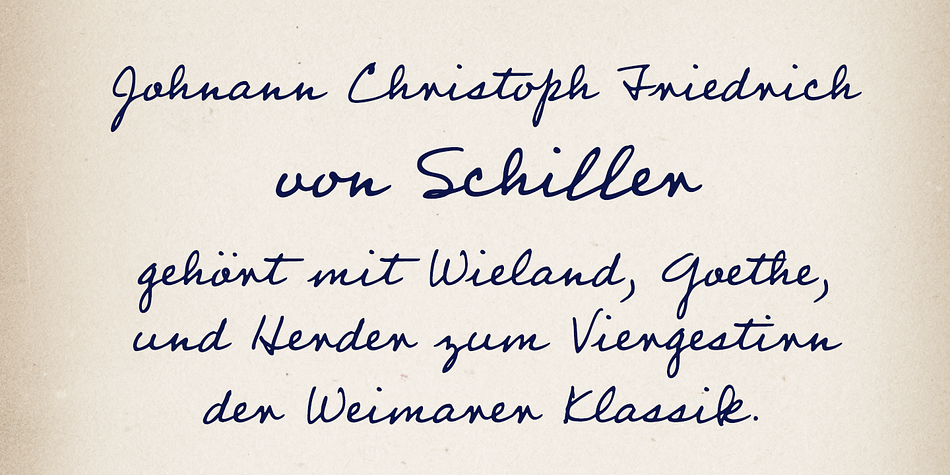 Johnann Christoph Friedrich
von Schiller
gehört mit Wieland, Goethe,
und Herder zum Viergestirn
der Weimarer Klassik.